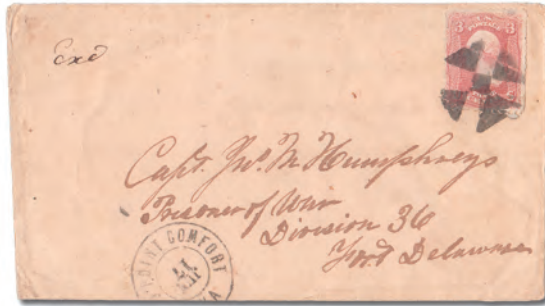 Exd
3 U.S. POSTAGE 3
Capt. Jno. M Humphreys
Prisoner of War
Division 36
Fort Delaware
POINT COMFORT
17
VA